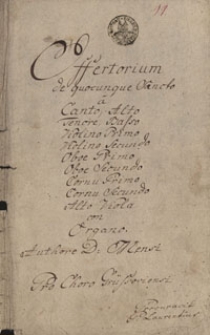 11
Offertorium
de quocunque Sancto
à
Canto, Alto
Tenore Basso
Violino Primo
Violino Secundo
Oboe Primo
Oboe Secundo
Cornu Primo
Cornu Secundo
Alto Viola
con
Organo.
Authore D:
Pro Choro
Procuravit